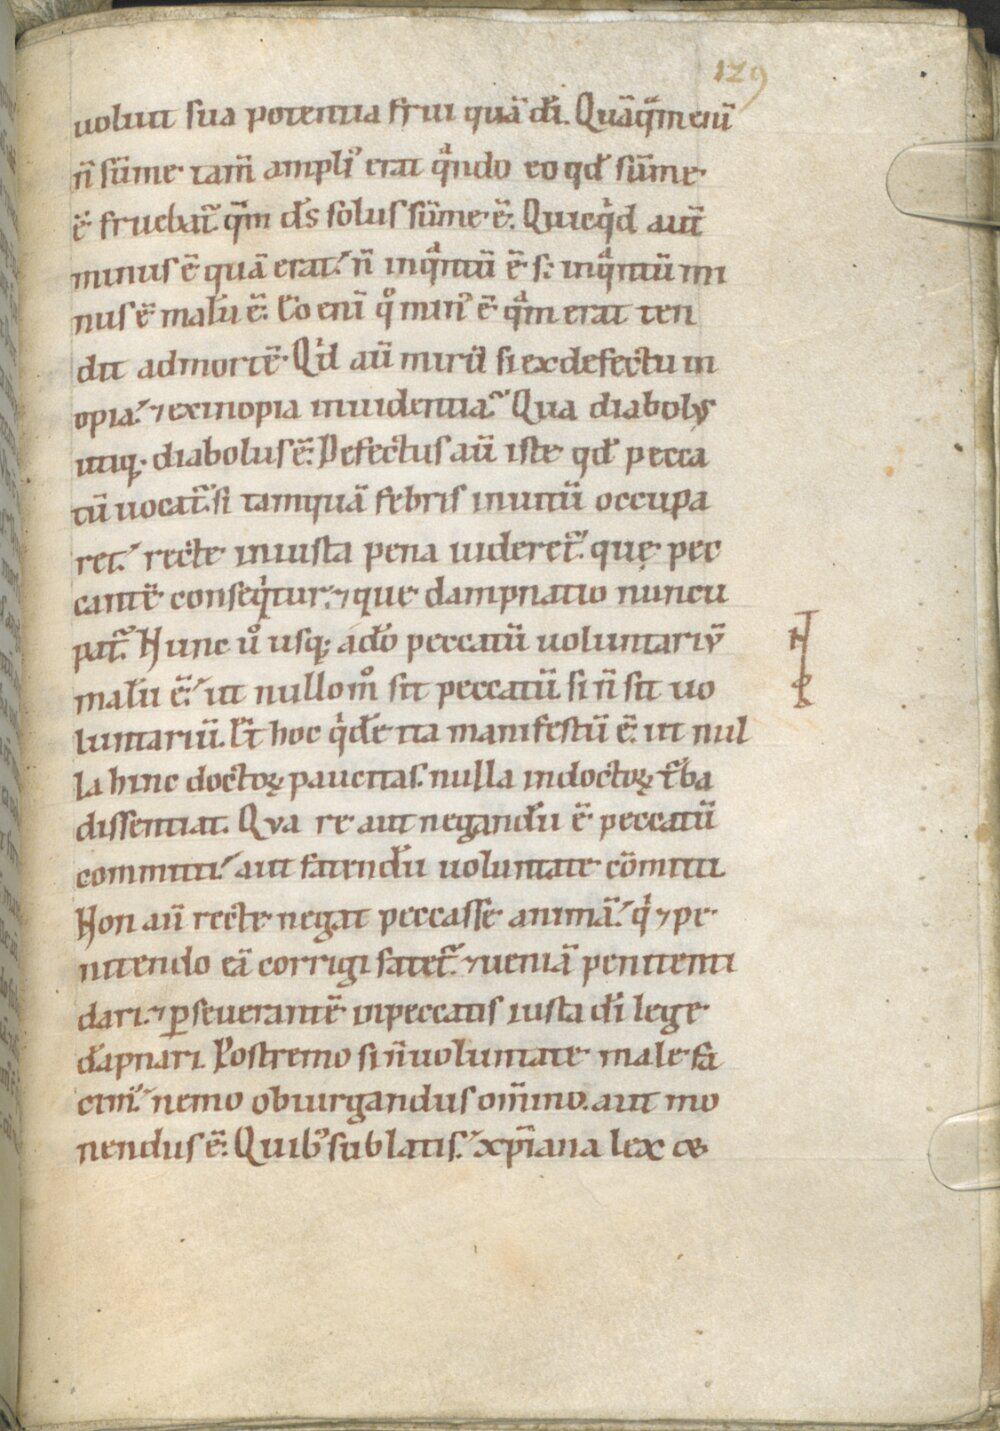 129
uoluit sua potentia frui quā dī. Quāqͣm enī
n̄ sūme. tam̄ ampliꝰ erat qͣndo eo qđ sūme
ē fruebat᷑. qͣm d̄s solus sūme ē. Quicqͥd aut̄
minus ē quā erat. n̄ inqͣntū ē s; inqͣntū mi
nus ē malū ē. Eo enī qͦ minꝰ ē qͣm erat ten
dit ad mortē. Qͥd aū mirū si ex defectu in
opia. ⁊ ex inopia inuidentia. Qua diabolꝰ
utiq;. diabolus ē. Defectus aū iste qđ pecca
tū uocat᷑. si tamquā febris inuitū occupa
ret. recte iniusta pena uideret᷑. quę pec
cantē conseqͥtur. ⁊ que dampnatio nuncu
pat᷑. Nunc ūͦ usq; adō peccatū uoluntariū
malū ē. ut nullo mͦ sit peccatū si n̄ sit uo
luntariū. Et hoc qͥdē ita manifestū ē. ut nul
la hinc doctoꝝ paucitas. nulla indoctoꝝ t᷑ba
dissentiat. Qua re aut negandū ē peccatū
committi. aut fatendū uoluntate cōmitti.
Non aū recte negat peccasse animā. qͥ ⁊ pe
nitendo eā corrigi fatet᷑. ⁊ ueniā penitenti
dari. ⁊ ꝑseuerantē in peccatis iusta dī lege
dāpnari. Postremo si n̄ uoluntate male fa
cimꝰ. nemo obiurgandus om̄ino. aut mo
nendus ē. Quibꝰ sublatis. xp̄iana lex ⁊ os